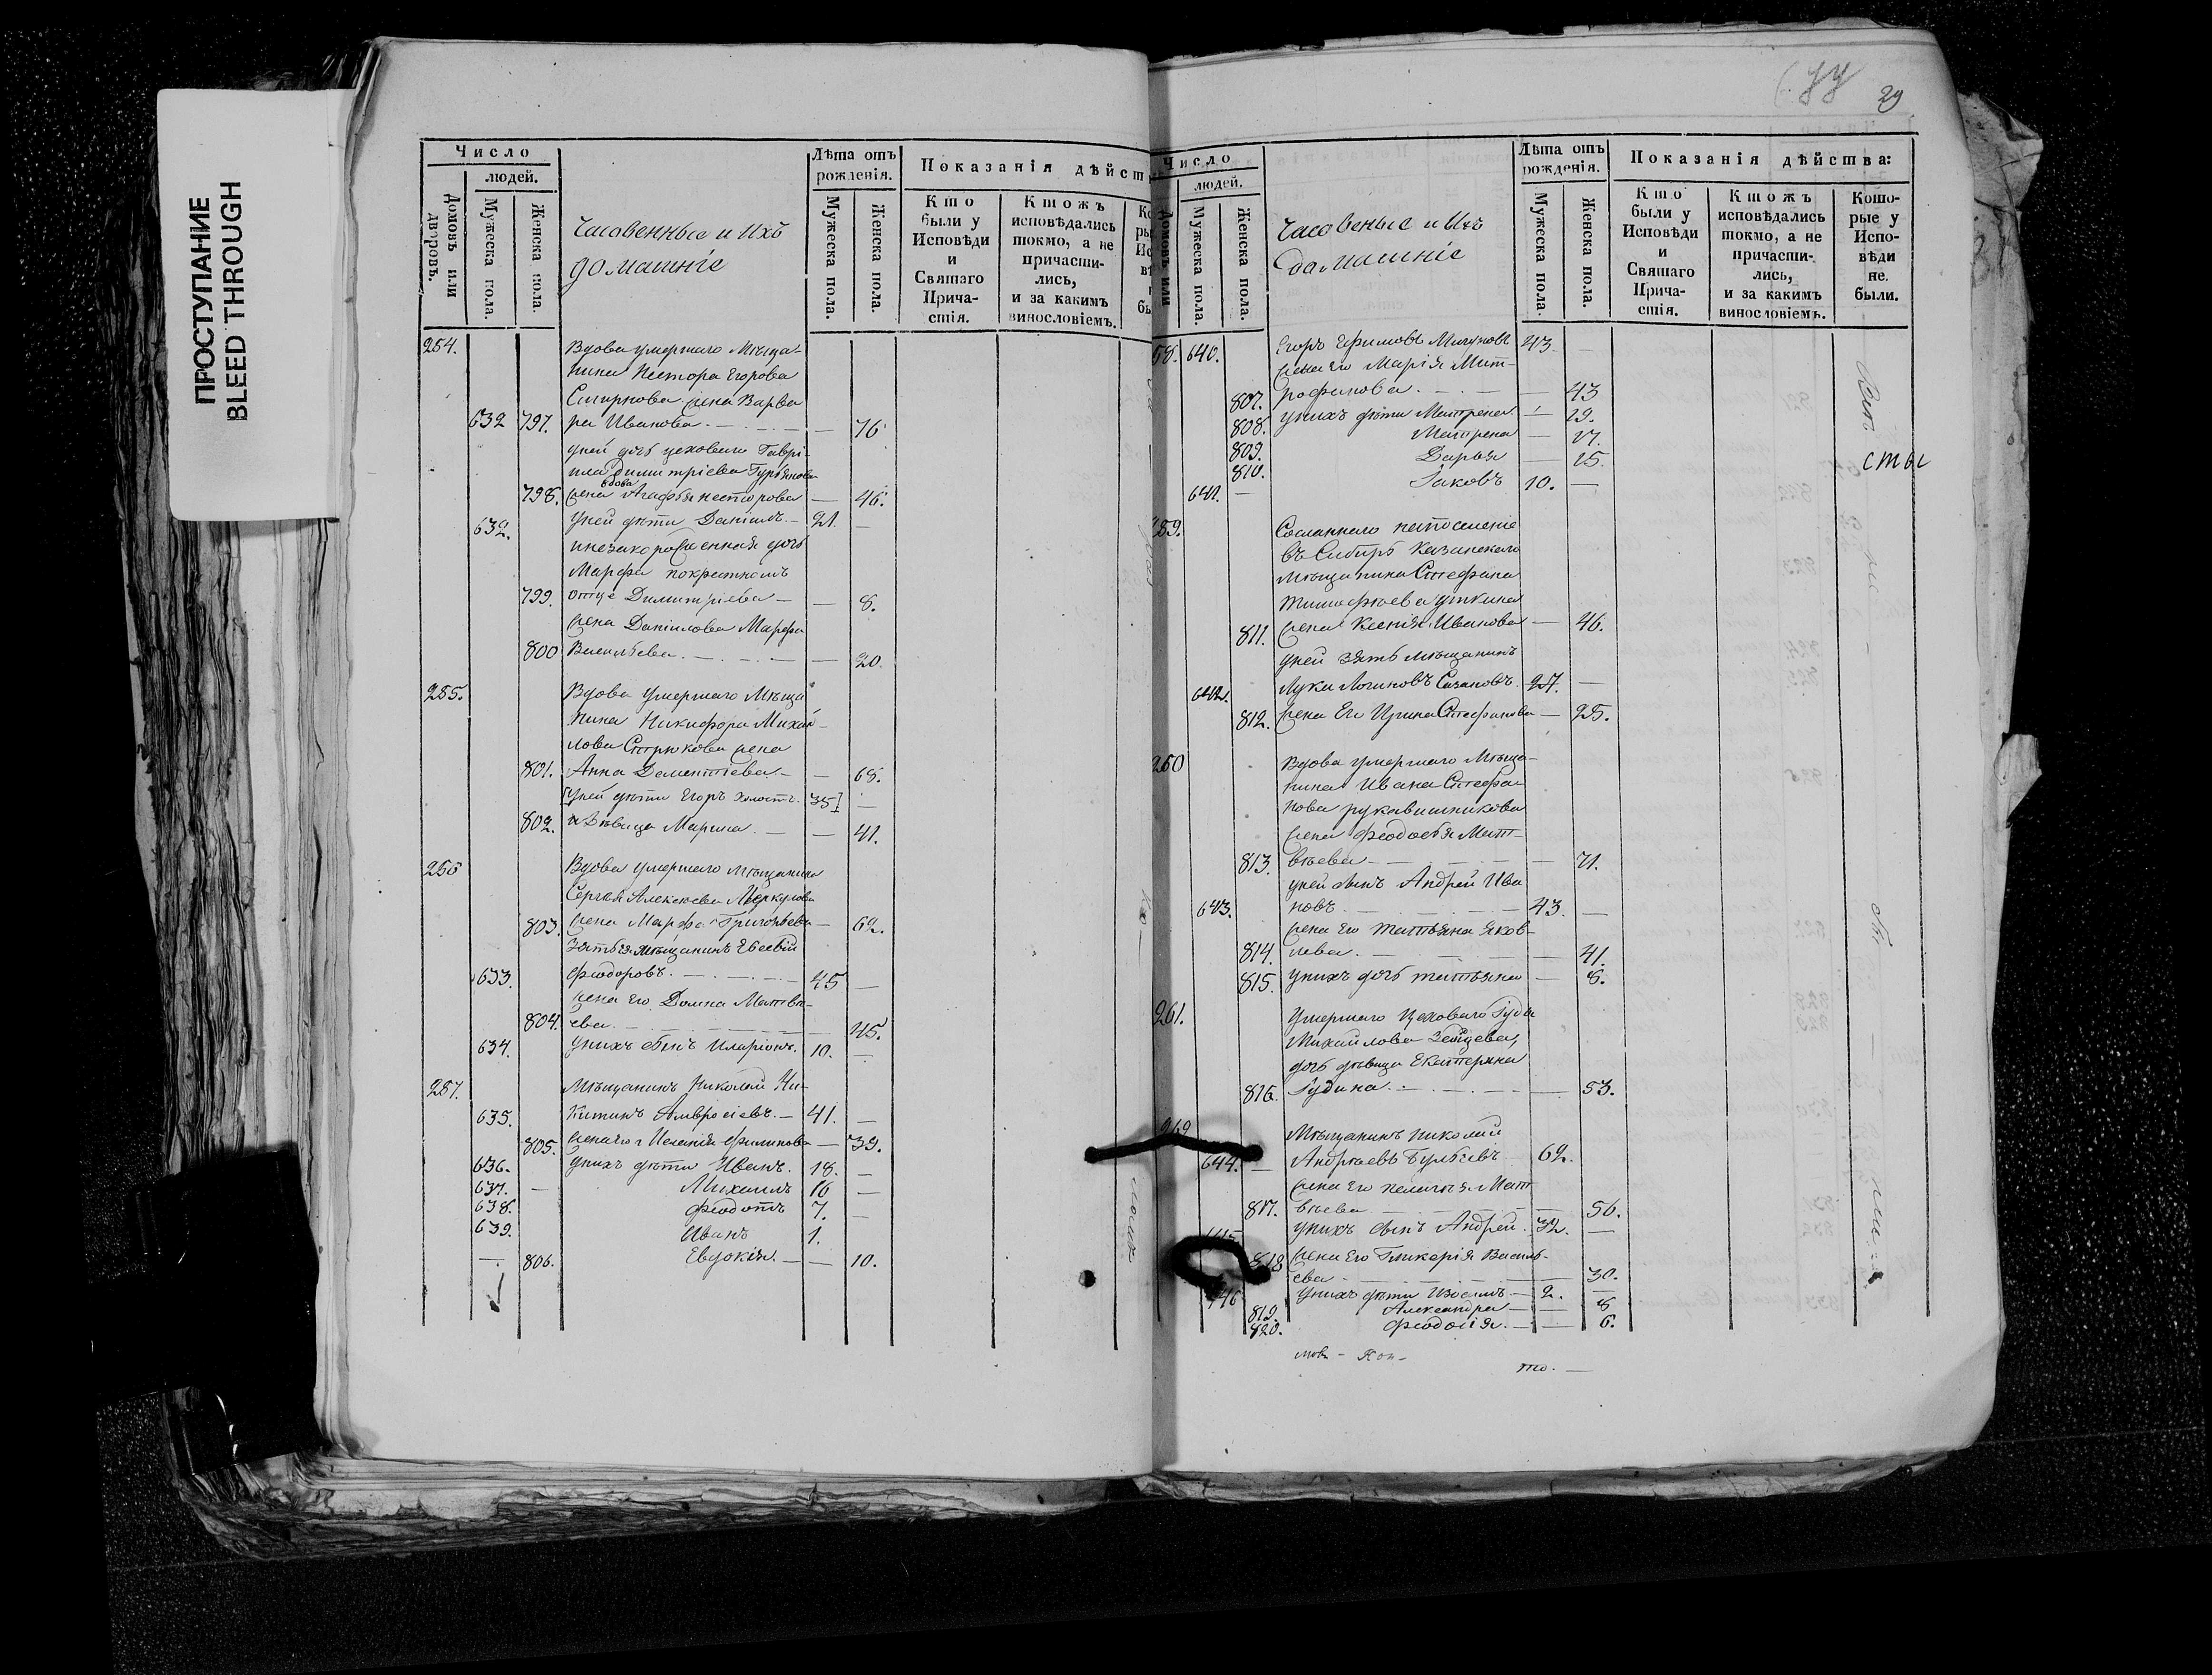 ПРОСТУПАНИЕ
BLEED THROUGH
29
Число
людей.
Домовъ или дворовъ.
Мужеска пола.
Женска пола.
Часовенные и Ихъ
домашніе
Лѣта отъ
рожденія.
Мужеска пола.
Женска пола.
Показанія дѣйст
Кто
были у
Исповѣди
и
Святаго
Прича-
стія.
Ктожъ
исповѣдались
токмо, а не
причасти-
лись,
и за какимъ
винословіемъ.
254. Вдова умершаго Мѣща-
нина Нестора Егорова
Смирнова жена Варва
632 797. ра Иванова — 76
уней дочь цеховаго Гаврі-
ила Димитріева Гурьянова
вдова
798. жена Агафья несторова — 46.
632. Уней дѣти Даніилъ — 21. —
инезаконорожденная дочь
Марфа покрестномъ
799. отце Димитріева — — 8.
жена Даніилова Марфа
800 Васильева. — 20.
255. Вдова умершаго Мѣща
нина Никифора Михай-
лова Стрюкова жена
801. Анна Дементіева — — 68.
[Уней дѣти Егоръ холостъ. 35] —
802. и Дѣвица Марина — — 41.
256 Вдова умершаго мѣщанина
Сергѣя Алексѣева Меркулова
803. жена Марфа Григорьева — 62.
Зять ея мѣщанинъ Евсевій
633. Феодоровъ. — 45 —
жена Его Домна Матвѣ-
804. ева. — 45.
634. Унихъ сынъ Иларіонъ. 10. —
257. Мѣщанинъ Николай Ни-
635. китинъ Амвросіевъ. — 41. —
805. жена его Пелагія Филипова — 39.
636. Унихъ дѣти Иванъ. 18. —
637. — Михаилъ 16 —
638. Феодотъ 7. —
639. Иванъ 1.
— 806. Евдокія. — — 10.
Число
людей.
Домовъ или
Мужеска пола.
Женска пола.
Часовеные и Ихъ
домашніе
Лѣта отъ
рожденія.
Мужеска пола.
Женска пола.
Показанія дѣйства:
Кто
были у
Исповѣди
и
Святаго
Прича-
стія.
Ктожъ
исповѣдались
токмо, а не
причасти-
лись,
и за какимъ
винословіемъ.
Кото-
рые у
Испо-
вѣди
не
были.
58. 640. Егоръ Ефимовъ 43 —
жена Его Марія Мит-
807. рофанова. — — 43
808. Унихъ дѣти Матрена — 29.
809. Матрена — 17.
810. Дарья — 15.
641. — Іаковъ 10. —
259. Сосланнаго напоселеніе
въ Сибирь Казанскаго
мѣщанина Стефана
Тимофѣева Уткина
811. жена Ксенія Иванова — 46.
уней зять мѣщанинъ
642. Лука Логиновъ Сазановъ. 27. —
812. жена Его Ирина Стефанова — 25.
260 Вдова умершаго Мѣща-
нина Ивана Стефа
нова рукавишникова
жена Феодосья Мат-
813. вѣева — — 71.
уней сынъ Андрей Ива
643. новъ. — 43. —
жена Его Татьяна Яков-
814. лева. — — 41.
815. Унихъ дочь татьяна — 8.
261. Умершаго Цеховаго Іуды
Михайлова Зайцева,
дочь дѣвица Екатерина
816. Іудина. — — 53.
262 Мѣщанинъ николай
644. — Андреевъ — 62.
жена Его пелагѣя Мат
817. вѣева — — 56.
645 Унихъ сынъ Андрей. 32. —
818 жена Его Гликерія Василь-
ева — — 30.
646 Унихъ дѣти — 2. —
819. Александра — — 8
820. Феодосія. — — 6.
то. —